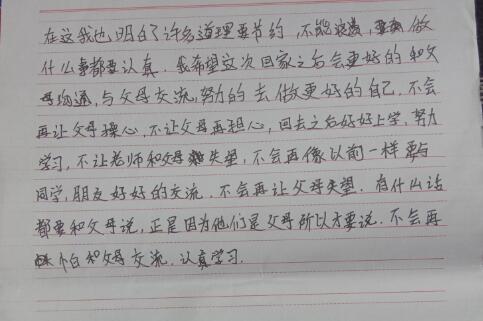 在这我也明白了许多道理要节约，不能浪费，做
什么事都要认真．我希望这次回家之后会更好的和父
母沟通，与父母交流．努力的去做更好的自己．不会
再让父母操心，不让父母再担心，回去之后好好上学，努力
学习，不让老师和父母失望，不会再像以前一样要与
同学，朋友好好的交流．不会再让父母失望．有什么话
都要和父母说，正是因为他们是父母所以才要说．不会再
和父母交流．认真学习．